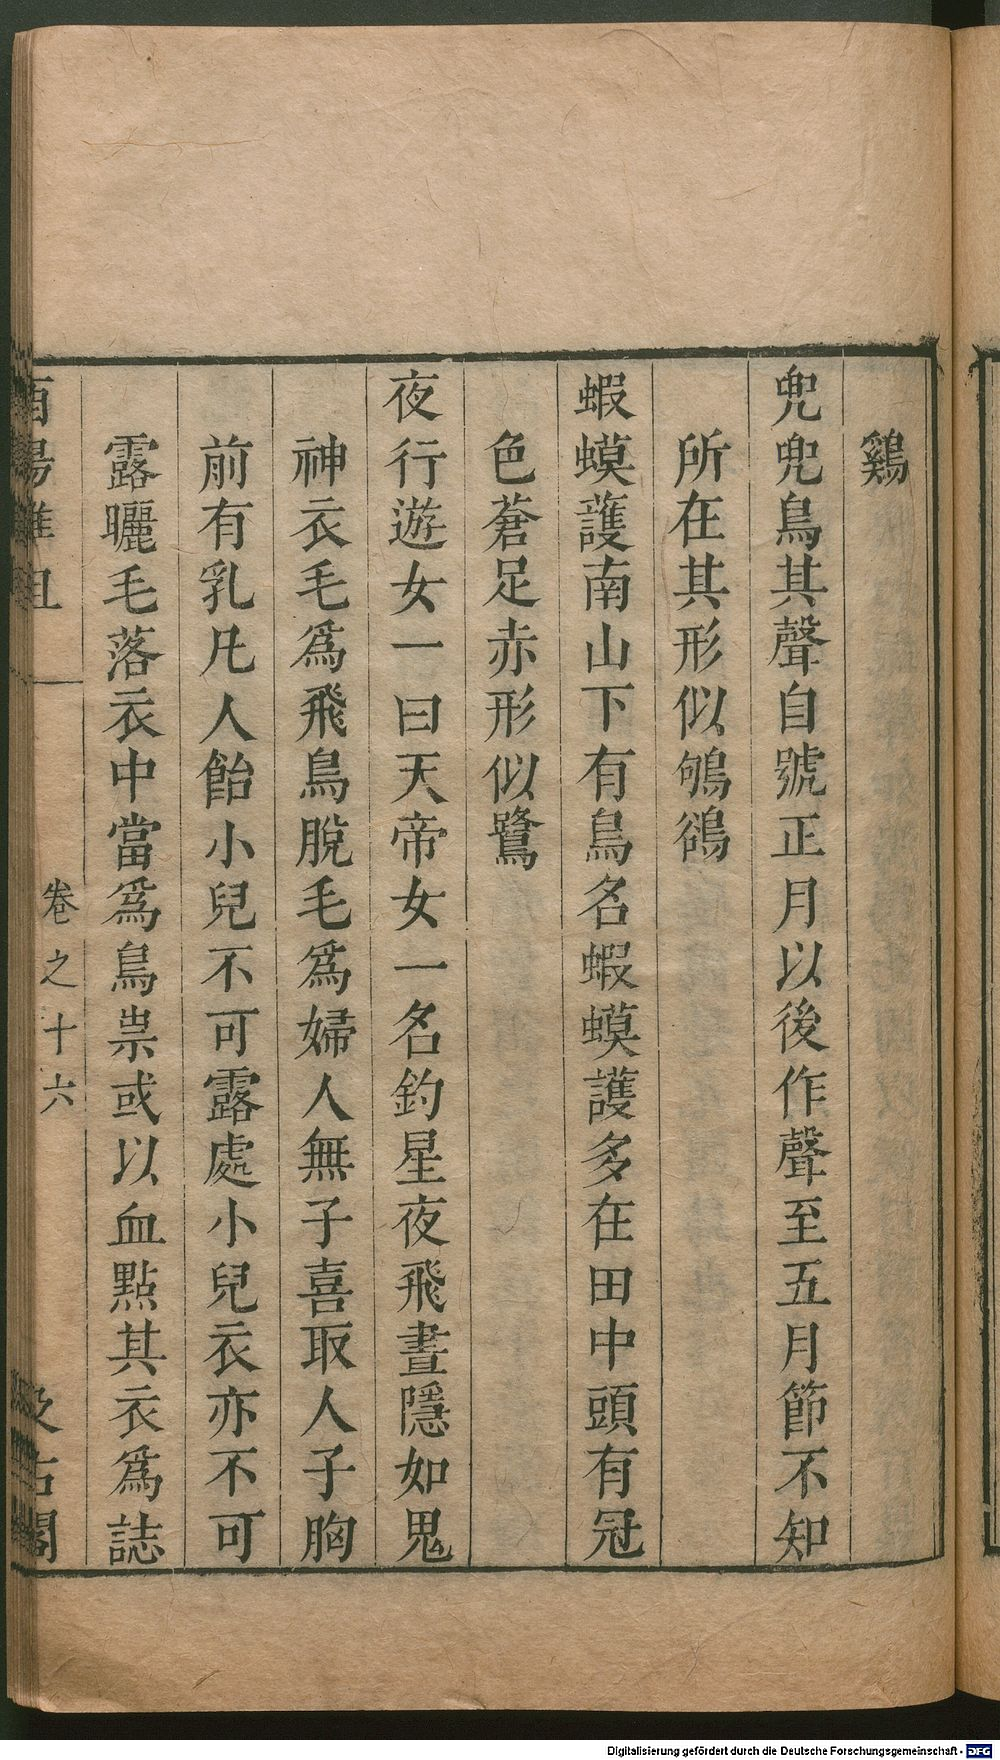 鷄
兜兜鳥其聲自號正月以後作聲至五月節不知
所在其形似鴝鵒
蝦蟆護南山下有鳥名蝦蟆護多在田中頭有冠
色蒼足赤形似鷺
夜行遊女一曰天帝女一名釣星夜飛晝隱如鬼
神衣毛爲飛鳥脫毛爲婦人無子喜取人子胸
前有乳凡人飴小兒不可露處小兒衣亦不可
露曬毛落衣中當爲鳥祟或以血點其衣爲誌
酉陽雜俎
卷之十六
汲古閣
Digitalisierung gefördert durch die Deutsche Forschungsgemeinschaft - DFG